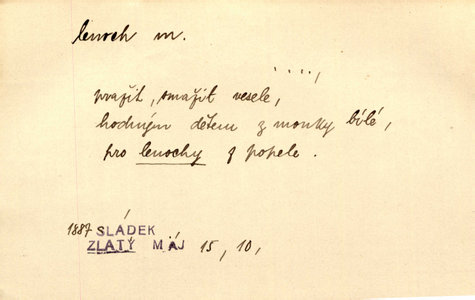 lenoch m.
....,
pražit, smažit vesele,
hodným dětem z mouky bílé,
pro lenochy z popele.
1887 SLÁDEK
ZLATÝ MÁJ 15, 10,